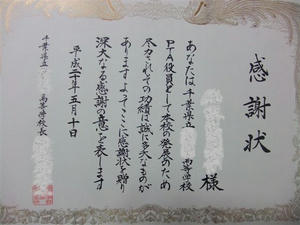 感謝状
様
あなたは千葉県立 高等学校
PTA役員として本校の発展のため
尽力されその功績は誠に多大なものが
あります よってここに感謝状を贈り
深大なる感謝の意を表します
平成二十年五月十日
千葉県立 高等学校長